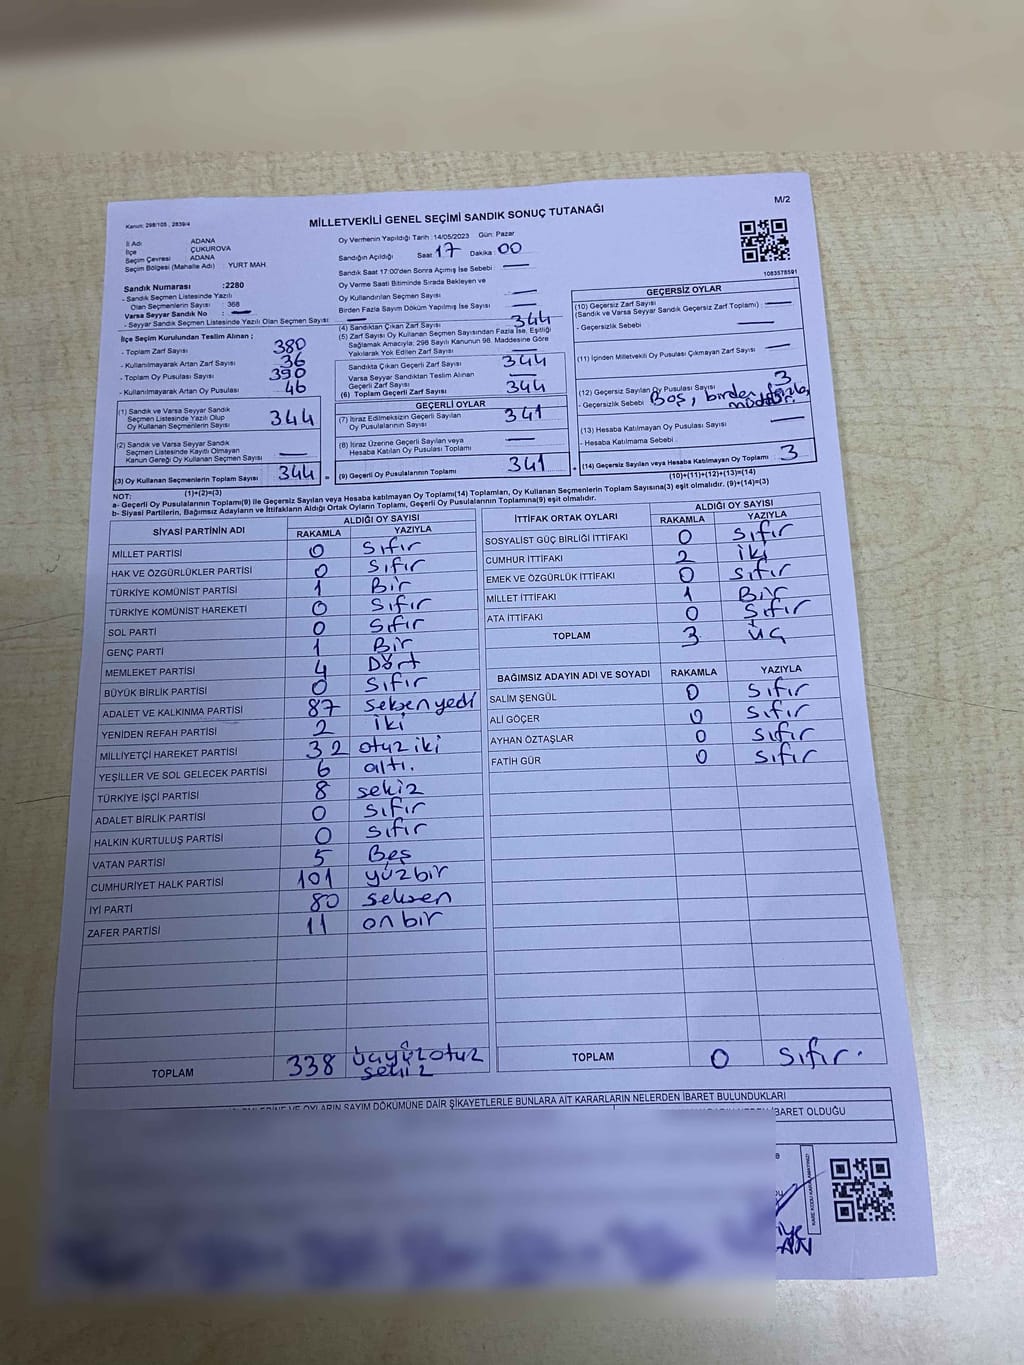 M/2
Kanun: 298/105 , 2839/4
MİLLETVEKİLİ GENEL SEÇİMİ SANDIK SONUÇ TUTANAĞI
İl Adı ADANA
İlçe ÇUKUROVA
Seçim Çevresi ADANA
Seçim Bölgesi (Mahalle Adı) YURT MAH
Sandık Numarası :2280
- Sandık Seçmen Listesinde Yazılı
Olan Seçmenlerin Sayısı 368
Varsa Seyyar Sandık No : —
- Seyyar Sandık Seçmen Listesinde Yazılı Olan Seçmen Sayısı —
İlçe Seçim Kurulundan Teslim Alınan ;
- Toplam Zarf Sayısı 380
- Kullanılmayarak Artan Zarf Sayısı 36
- Toplam Oy Pusulası Sayısı 390
- Kullanılmayarak Artan Oy Pusulası 46
(1) Sandık ve Varsa Seyyar Sandık
Seçmen Listesinde Yazılı Olup
Oy Kullanan Seçmenlerin Sayısı 344
(2) Sandık ve Varsa Seyyar Sandık
Seçmen Listesinde Kayıtlı Olmayan
Kanun Gereği Oy Kullanan Seçmen Sayısı —
(3) Oy Kullanan Seçmenlerin Toplam Sayısı 344 =
(1)+(2)=(3)
Oy Vermenin Yapıldığı Tarih :14/05/2023 Gün: Pazar
Sandığın Açıldığı Saat : 17 Dakika : 00
Sandık Saat 17:00'den Sonra Açılmış İse Sebebi : —
Oy Verme Saati Bitiminde Sırada Bekleyen ve
Oy Kullandırılan Seçmen Sayısı —
Birden Fazla Sayım Döküm Yapılmış İse Sayısı —
(4) Sandıktan Çıkan Zarf Sayısı 344
(5) Zarf Sayısı Oy Kullanan Seçmen Sayısından Fazla İse, Eşitliği
Sağlamak Amacıyla; 298 Sayılı Kanunun 98. Maddesine Göre
Yakılarak Yok Edilen Zarf Sayısı —
Sandıkta Çıkan Geçerli Zarf Sayısı 344
Varsa Seyyar Sandıktan Teslim Alınan
Geçerli Zarf Sayısı —
(6) Toplam Geçerli Zarf Sayısı 344
GEÇERLİ OYLAR
(7) İtiraz Edilmeksizin Geçerli Sayılan
Oy Pusulasının Sayısı 341
(8) İtiraz Üzerine Geçerli Sayılan veya
Hesaba Katılan Oy Pusulası Toplamı —
(9) Geçerli Oy Pusulalarının Toplamı 341 +
1083578591
GEÇERSİZ OYLAR
(10) Geçersiz Zarf Sayısı
(Sandık ve Varsa Seyyar Sandık Geçersiz Zarf Toplamı) —
- Geçersizlik Sebebi —
(11) İçinden Milletvekili Oy Pusulası Çıkmayan Zarf Sayısı —
(12) Geçersiz Sayılan Oy Pusulası Sayısı 3
- Geçersizlik Sebebi Boş, birden fazla
mühür.
(13) Hesaba Katılmayan Oy Pusulası Sayısı —
- Hesaba Katılmama Sebebi —
(14) Geçersiz Sayılan veya Hesaba Katılmayan Oy Toplamı 3
(10)+(11)+(12)+(13)=(14)
NOT:
a- Geçerli Oy Pusulalarının Toplamı(9) ile Geçersiz Sayılan veya Hesaba katılmayan Oy Toplamı(14) Toplamları, Oy Kullanan Seçmenlerin Toplam Sayısına(3) eşit olmalıdır. (9)+(14)=(3)
b- Siyasi Partilerin, Bağımsız Adayların ve İttifakların Aldığı Ortak Oyların Toplamı, Geçerli Oy Pusulalarının Toplamına(9) eşit olmalıdır.
SİYASİ PARTİNİN ADI ALDIĞI OY SAYISI
RAKAMLA YAZIYLA
MİLLET PARTİSİ 0 Sıfır
HAK VE ÖZGÜRLÜKLER PARTİSİ 0 Sıfır
TÜRKİYE KOMÜNİST PARTİSİ 1 Bir
TÜRKİYE KOMÜNİST HAREKETİ 0 Sıfır
SOL PARTİ 0 Sıfır
GENÇ PARTİ 1 Bir
MEMLEKET PARTİSİ 4 Dört
BÜYÜK BİRLİK PARTİSİ 0 Sıfır
ADALET VE KALKINMA PARTİSİ 87 seksen yedi
YENİDEN REFAH PARTİSİ 2 iki
MİLLİYETÇİ HAREKET PARTİSİ 32 otuz iki
YEŞİLLER VE SOL GELECEK PARTİSİ 6 altı.
TÜRKİYE İŞÇİ PARTİSİ 8 sekiz
ADALET BİRLİK PARTİSİ 0 Sıfır
HALKIN KURTULUŞ PARTİSİ 0 Sıfır
VATAN PARTİSİ 5 Beş
CUMHURİYET HALK PARTİSİ 101 yüzbir
İYİ PARTİ 80 seksen
ZAFER PARTİSİ 11 on bir
TOPLAM 338 üçyüz otuz
sekiz
İTTİFAK ORTAK OYLARI ALDIĞI OY SAYISI
RAKAMLA YAZIYLA
SOSYALİST GÜÇ BİRLİĞİ İTTİFAKI 0 Sıfır
CUMHUR İTTİFAKI 2 iki
EMEK VE ÖZGÜRLÜK İTTİFAKI 0 Sıfır
MİLLET İTTİFAKI 1 Bir
ATA İTTİFAKI 0 Sıfır
TOPLAM 3 Üç
BAĞIMSIZ ADAYIN ADI VE SOYADI RAKAMLA YAZIYLA
SALİM ŞENGÜL 0 Sıfır
ALİ GÖÇER 0 Sıfır
AYHAN ÖZTAŞLAR 0 Sıfır
FATİH GÜR 0 Sıfır
TOPLAM 0 Sıfır.
OYLARIN SAYIM DÖKÜMÜNE DAİR ŞİKAYETLERLE BUNLARA AİT KARARLARIN NELERDEN İBARET BULUNDUKLARI
İBARET OLDUĞU